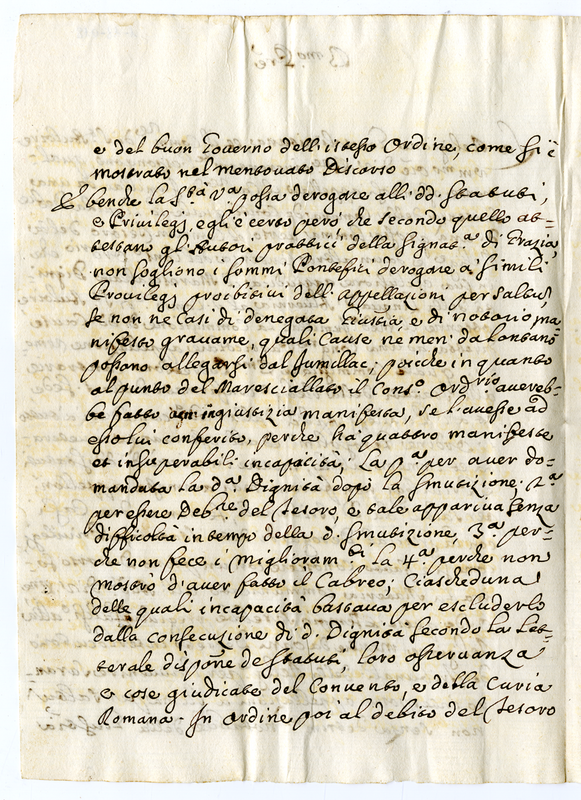 e del buon Governo dell'istesso Ordine, come si è
mostrato nel mentovato Discorso
E benche la S.tà V.a possa derogare alli dd. Statuti,
e Privilegj, egl'è certo però che secondo quello at=
testano gl'Autori prattici della Signat.a di Grazia,
non sogliono i Sommi Pontefici derogare a' simili
Privilegj proibitivi dell'appellazioni per Saltus,
se non ne Casi di denegata Giustizia, e di notorio ma=
nifesto gravame, quali Cause ne men' da lontano
possono allegarsi dal Jumillac; poiche in quanto
al punto del Maresciallato il Cons.o Ord.rio avereb=
be fatto ingiustizia manifesta, se l'avesse ad
esso lui conferito, perche ha quattro manifeste
et insuperabili incapacità; La p.a per aver do=
mandata la d.a Dignità dopò la Smutizione, 2.a
per essere Deb.re del Tesoro, e tale appariva senza
difficoltà in tempo della d. Smutizione, 3.a per=
che non fece i Miglioram.ti la 4.a perche non
mostrò d'aver fatto il Cabreo; Ciascheduna
delle quali incapacità bastava per escluderlo
dalla consecuzione di d. Dignità secondo la Let=
terale dispõne de Statuti, loro osservanza
e cose giudicate del Convento, e della Curia
Romana. In ordine poi al debito del Tesoro